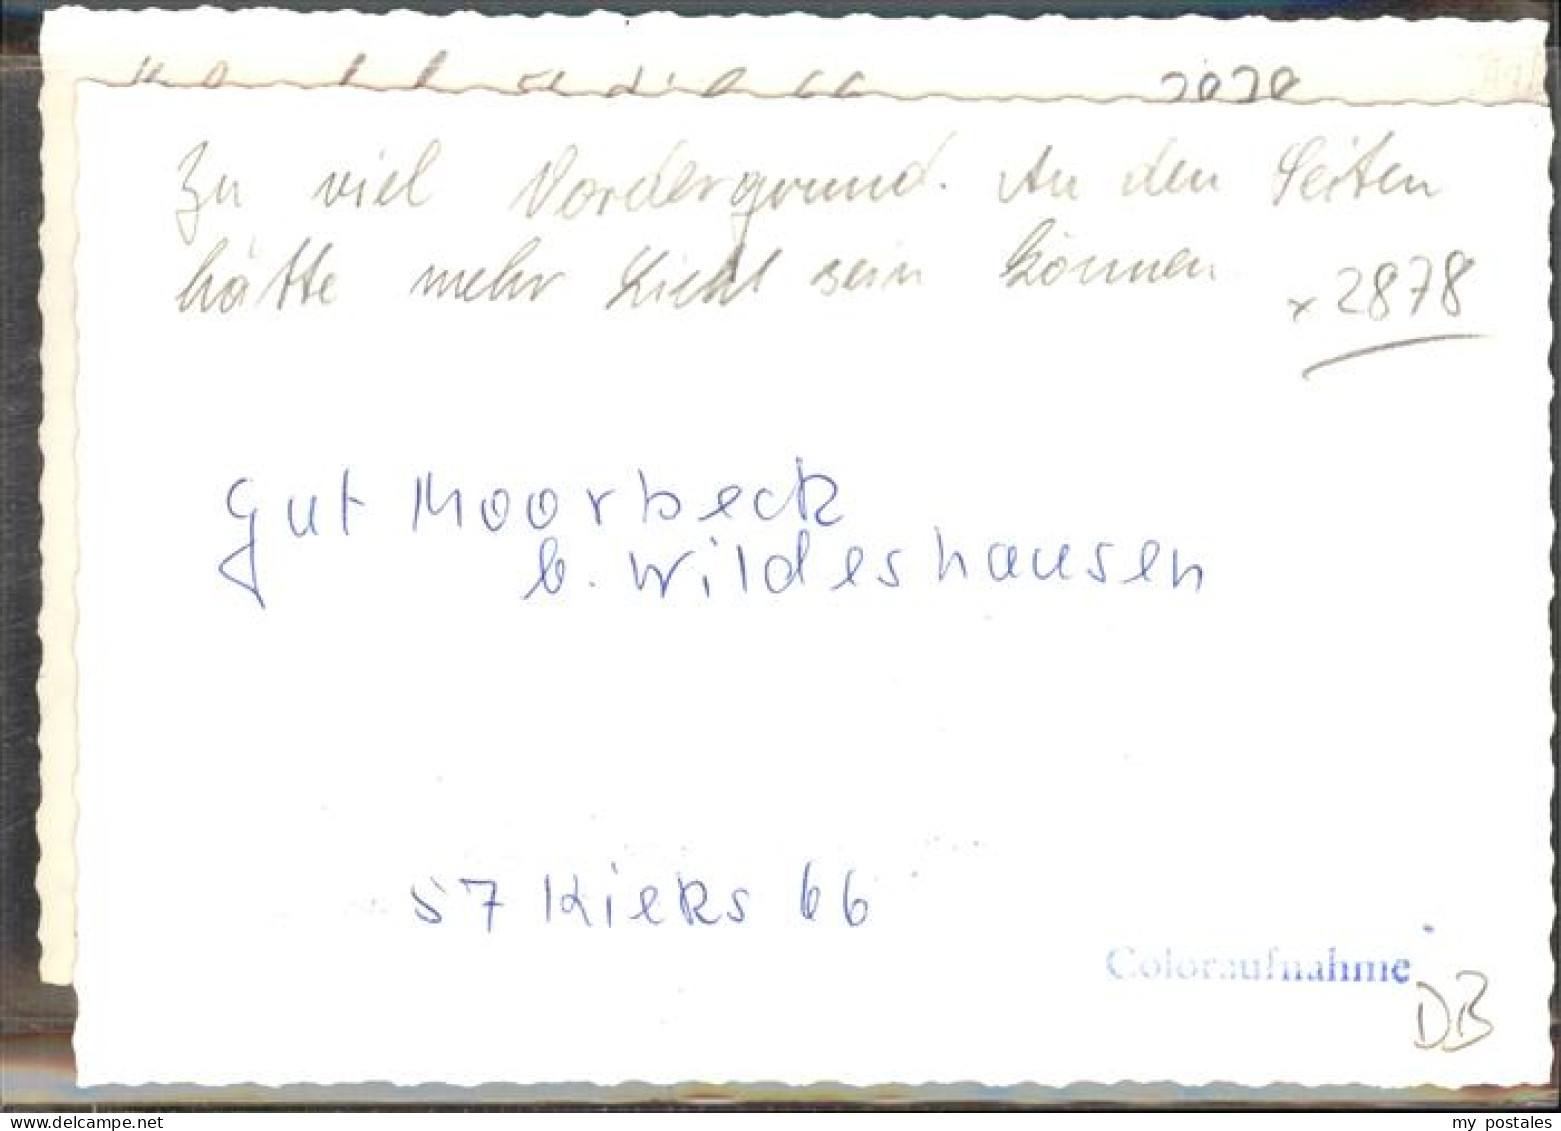 Zu viel Vordergrund. An den Seiten
hätte mehr Licht sein können
x 2878
Gut Moorbeck
b. Wildeshausen
57 Kieks 66
Coloraufnahme
DB
www.delcampe.net
my_postales